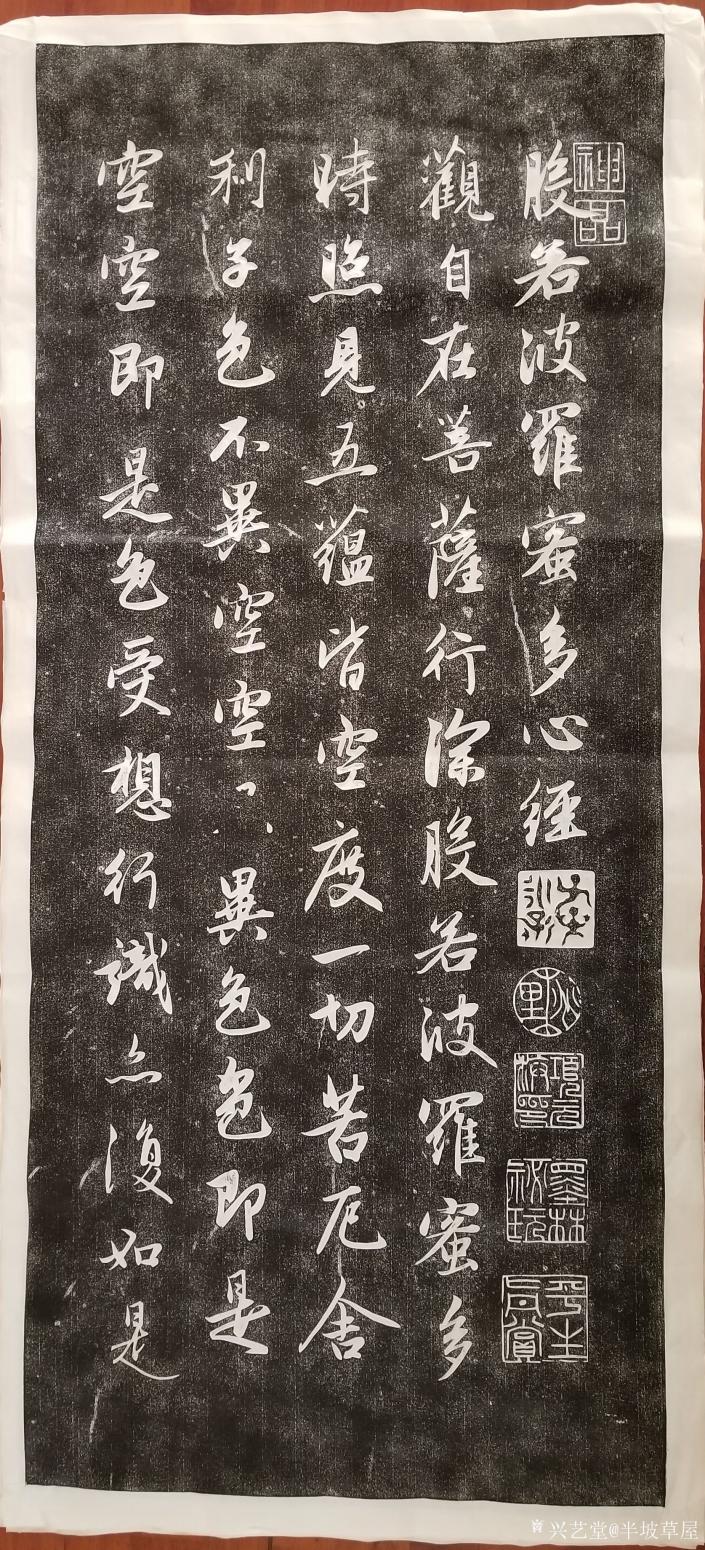 神品
般若波羅蜜多心經
項元汴印
墨林祕玩
觀自在菩薩行深般若波羅蜜多
時照見五蘊皆空度一切苦厄舍
利子色不異空空不異色色即是
空空即是色受想行識亦復如是
兴艺堂@半坡草屋